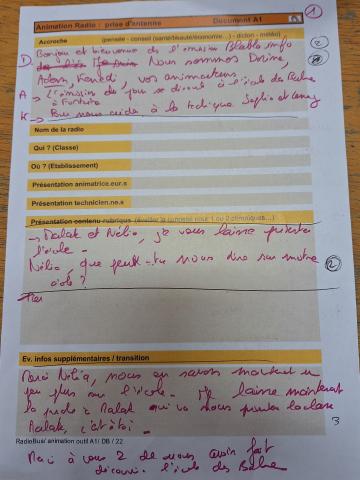 Animation Radio : prise d'antenne Document A1
1
Accroche (pensée - conseil (santé/beauté/économie...) - dicton - météo)
Bonjour et bienvenue dans l'émission Blabla info
2
D. Nous sommes Dorine,
Adam, Kenadi, vos animateurs.
A → L'émission de jour se déroule à l'école de
à
K → Pour nous aider à la technique Sophia et
Nom de la radio
Qui ? (Classe)
Où ? (Etablissement)
Présentation animatrice.eur.s
Présentation technicien.ne.s
Présentation contenu rubrique (éveiller la curiosité pour 1 ou 2 chroniques...)
→ Malak et Nélia, je vous laisse présenter
l'école -
Nélia, que peux-tu nous dire sur notre
école ?
2
Ev. infos supplémentaires / transition
Merci Nélia, nous en savons maintenant un
peu plus sur l'école. Je laisse maintenant
la parole à Malak qui va nous présenter la classe
Malak, c'est à toi.
3
RadioBus/ animation outil A1/ DB / 22
Merci à vous 2 de nous avoir fait
découvrir l'école des